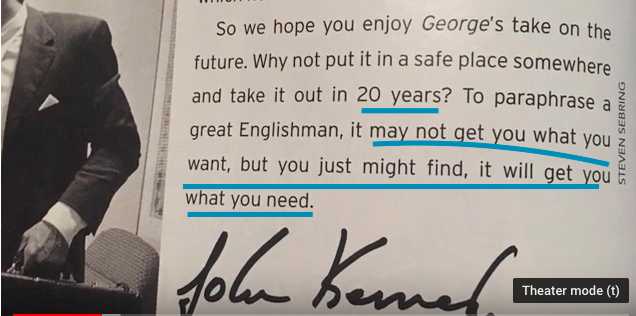 So we hope you enjoy George's take on the
future. Why not put it in a safe place somewhere
and take it out in 20 years? To paraphrase a
great Englishman, it may not get you what you
want, but you just might find, it will get you
what you need.
STEVEN SEBRING
John Kenned
Theater mode (t)